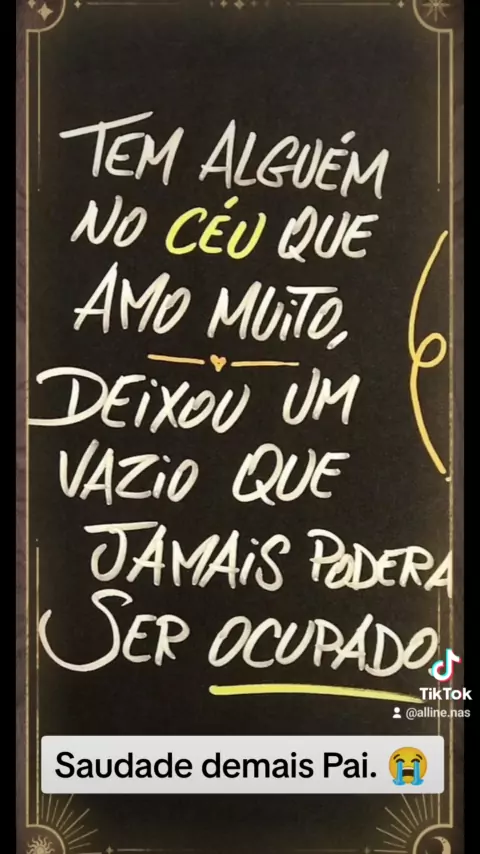 TEM ALGUÉM
NO CÉU QUE
AMO MUITO,
DEIXOU UM
VAZIO QUE
JAMAIS PODERA
SER OCUPADO
TikTok
@alline.nas
Saudade demais Pai. 😭